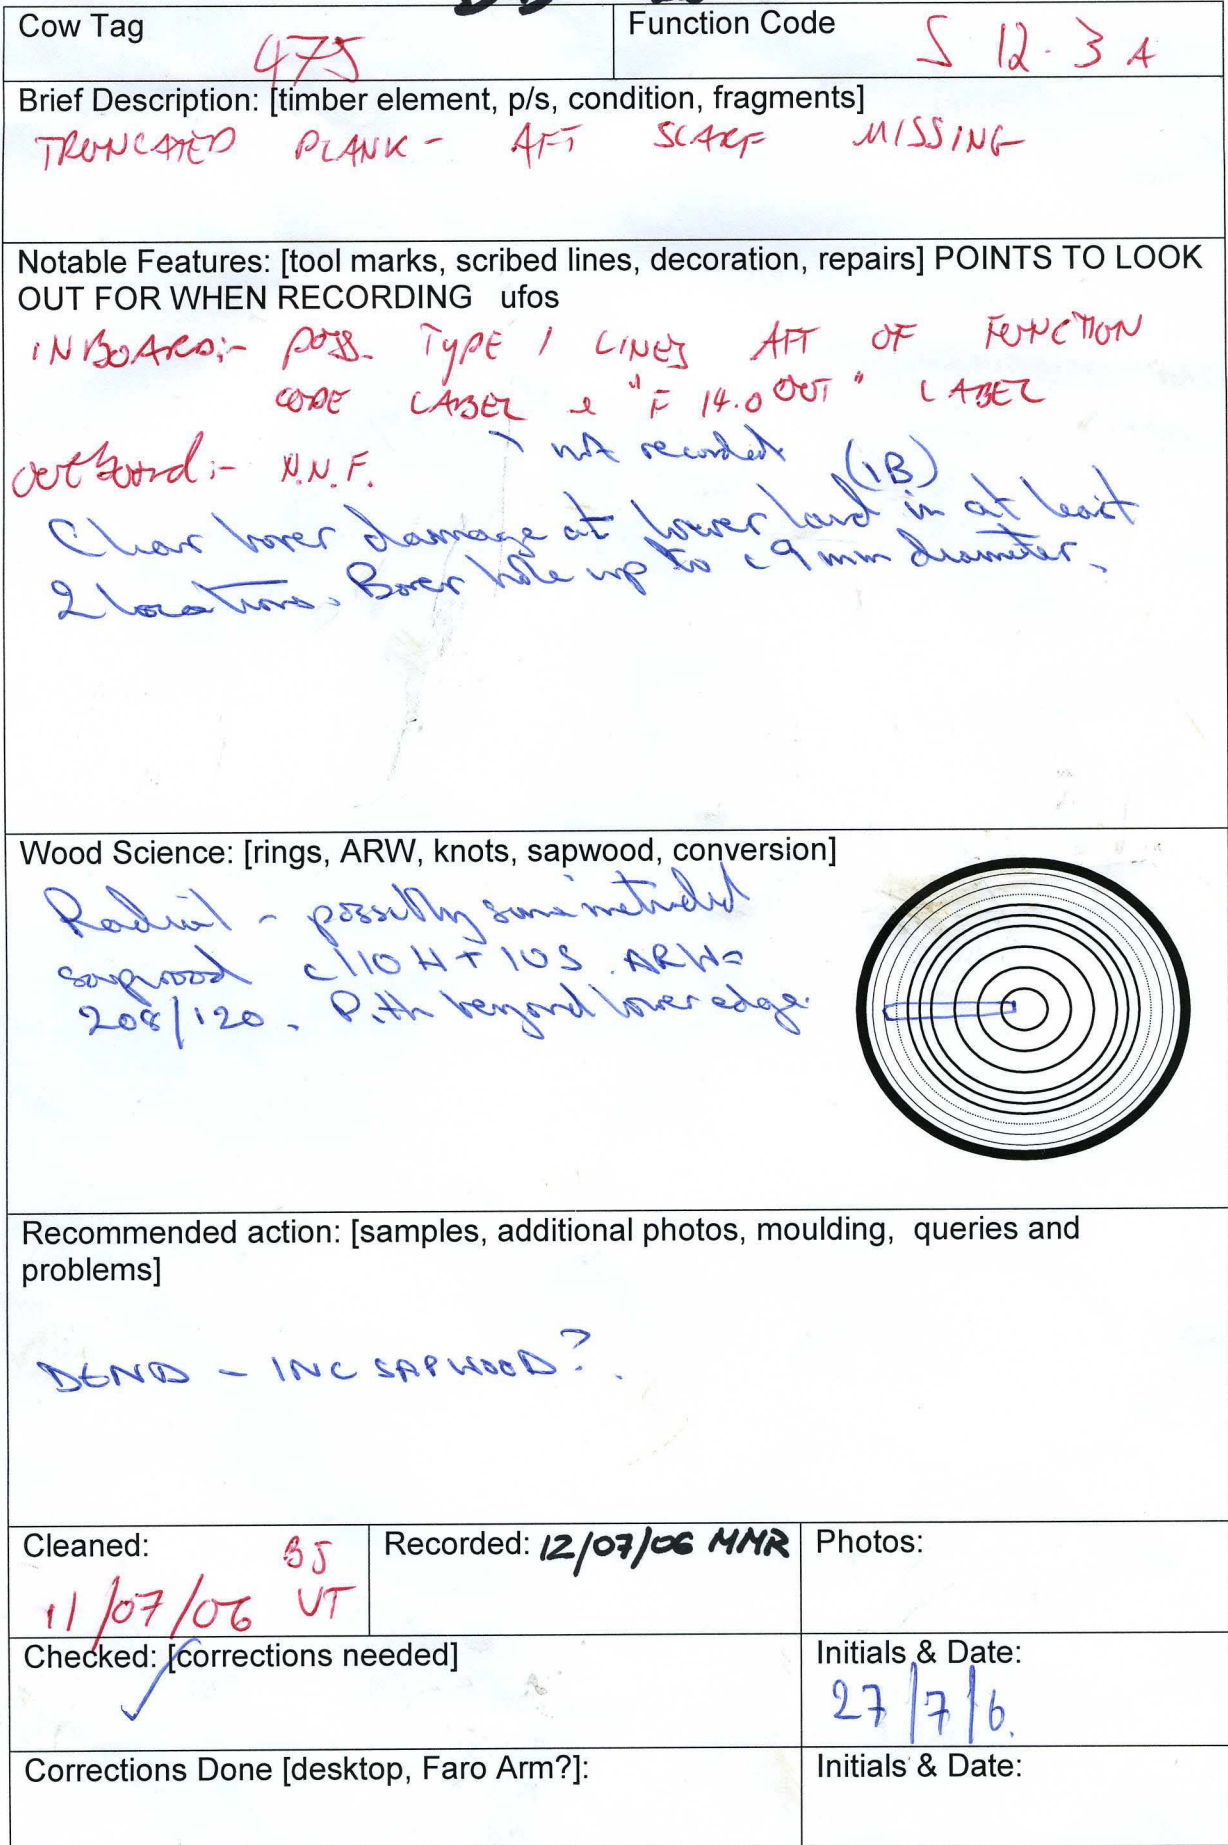 Cow Tag
475
Function Code
S 12.3 A
Brief Description: [timber element, p/s, condition, fragments]
TRUNCATED PLANK - AFT SCARF MISSING
Notable Features: [tool marks, scribed lines, decoration, repairs] POINTS TO LOOK
OUT FOR WHEN RECORDING ufos
INBOARD:- POSS. TYPE 1 LINES AFT OF FUNCTION
CODE LABEL & "F 14.0 OUT" LABEL
not recorded
Outboard:- N.N.F.
(IB)
Clear borer damage at lower land in at least
2 locations. Borer hole up to c9mm diameter.
Wood Science: [rings, ARW, knots, sapwood, conversion]
Radial - possibly some
sapwood c110H + 10S. ARW=
208/120. Pith beyond lower edge.
Recommended action: [samples, additional photos, moulding, queries and
problems]
DEND - INC SAPWOOD?.
Cleaned:
BJ
11/07/06 VT
Recorded: 12/07/06 MMR
Photos:
Checked: [corrections needed]
✓
Initials & Date:
27/7/6.
Corrections Done [desktop, Faro Arm?]:
Initials & Date: